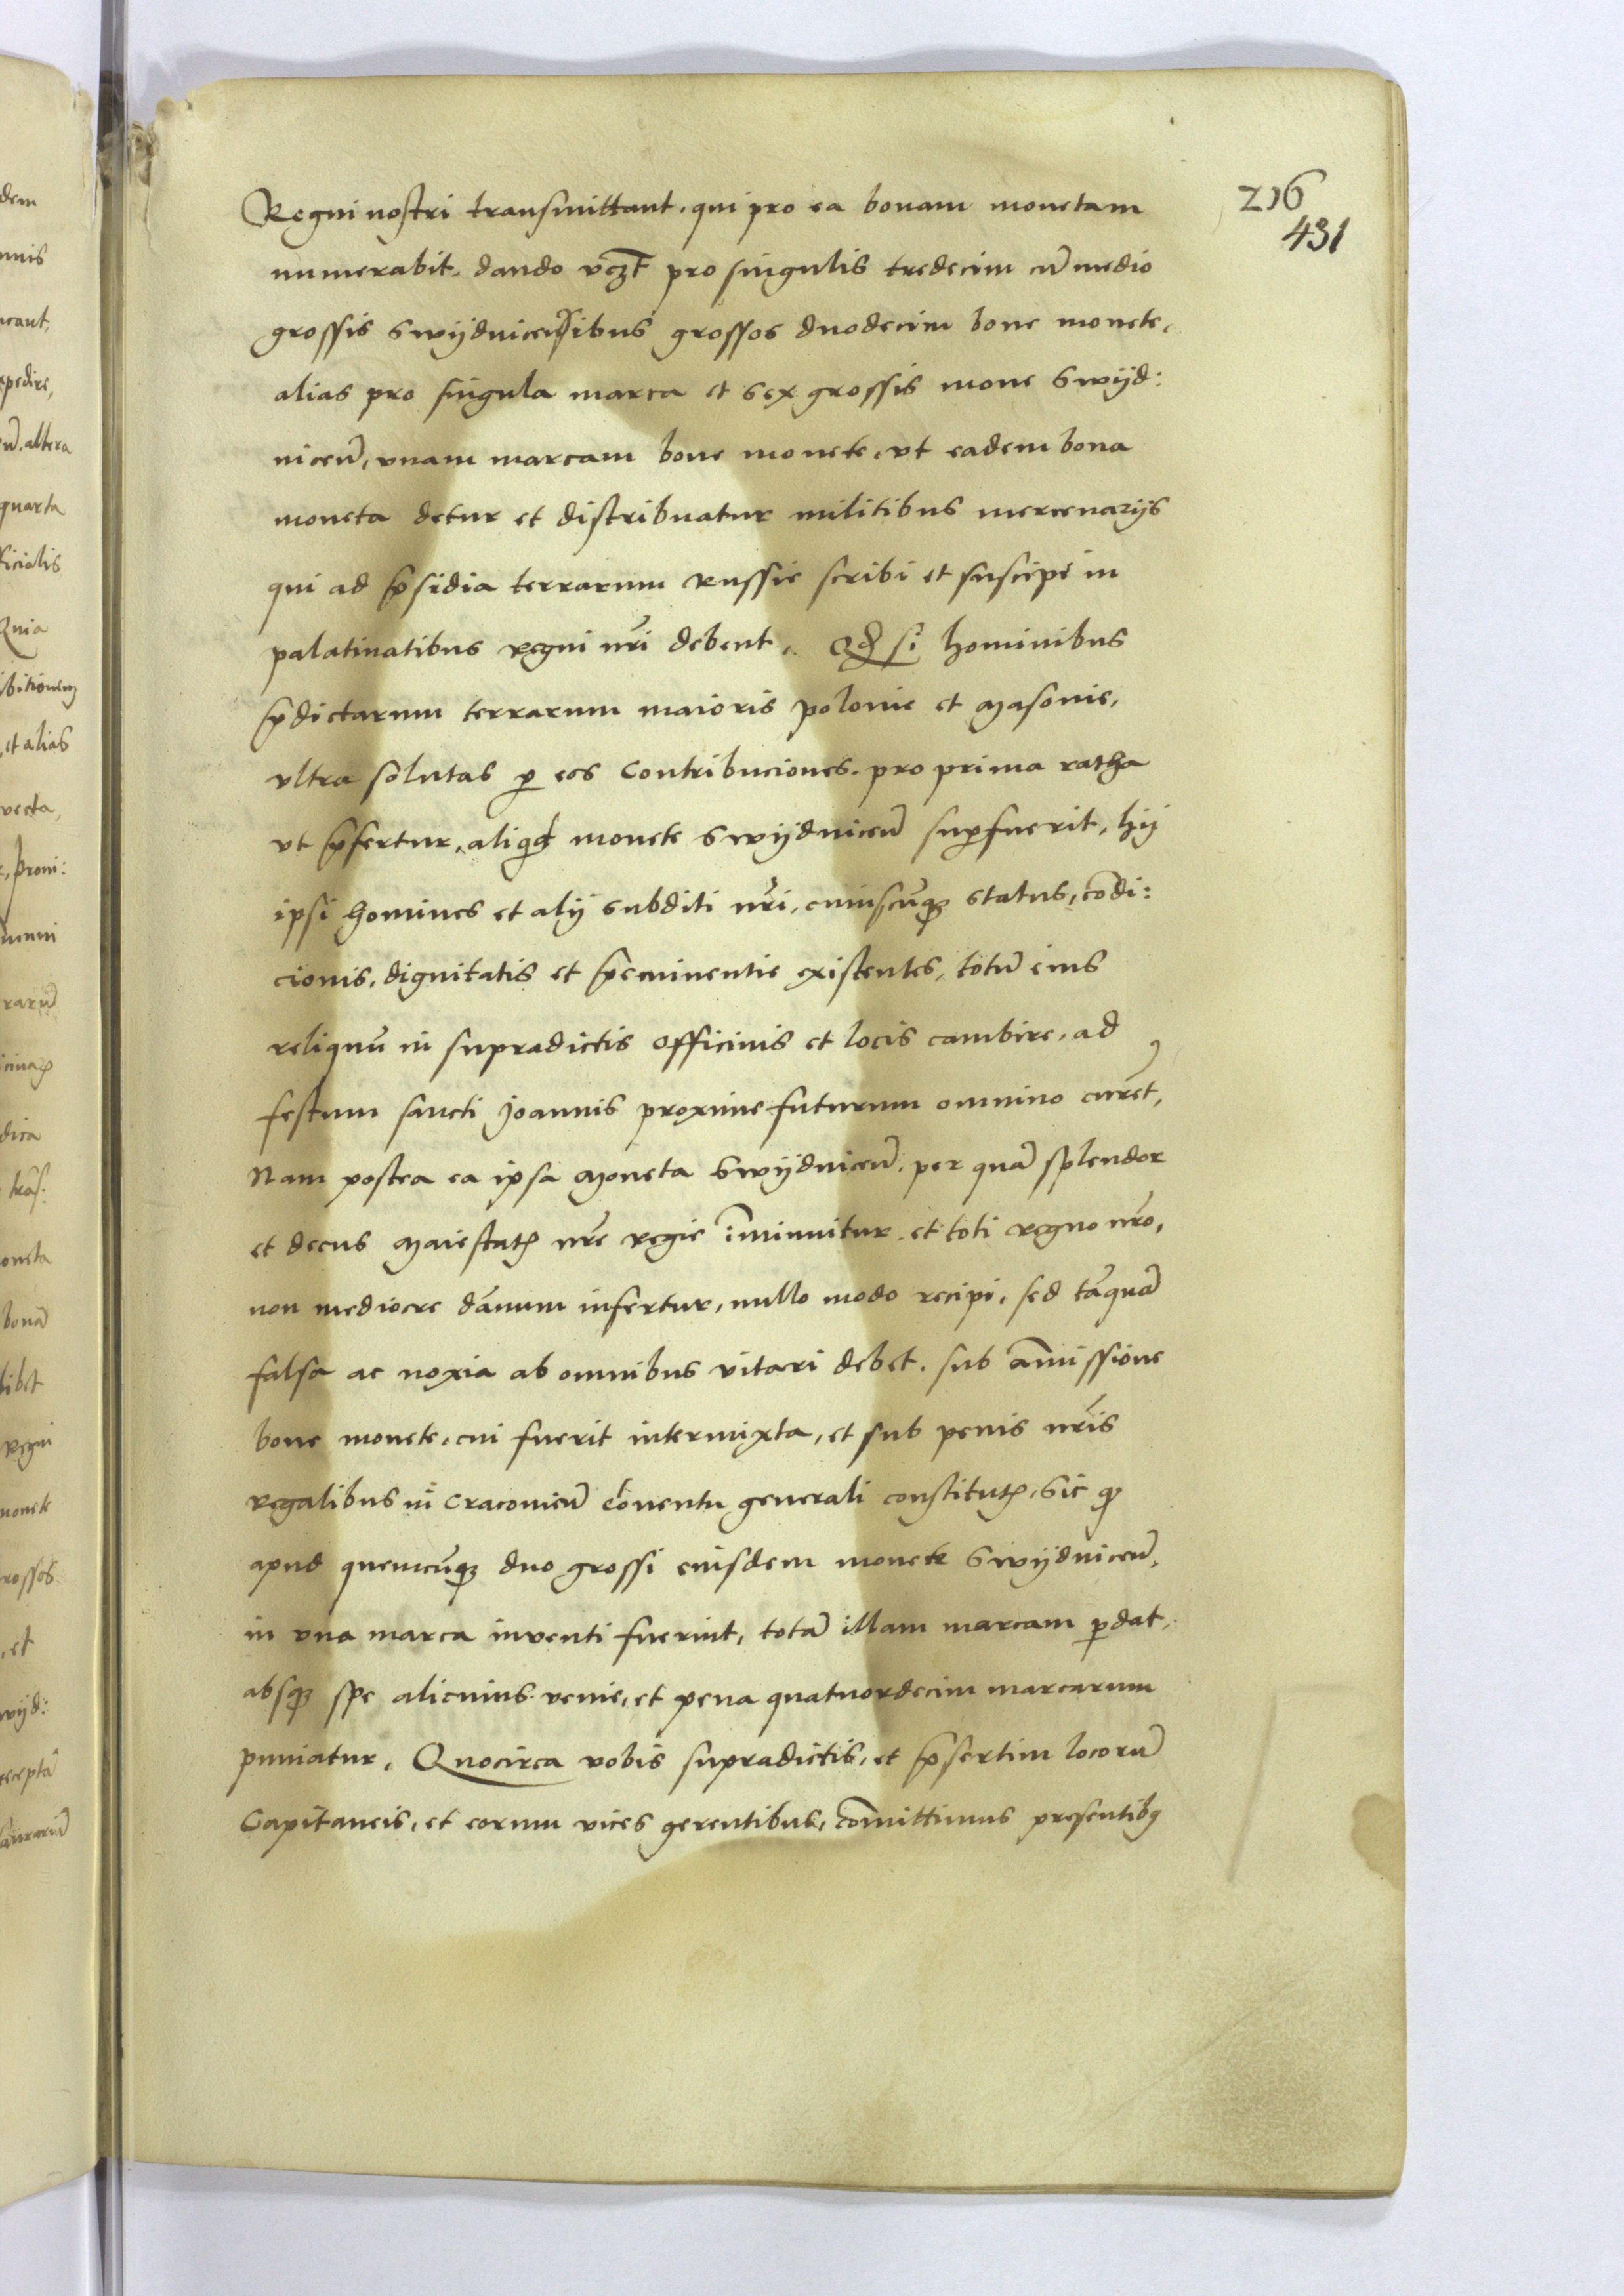 216
431
Regni nostri transmittant, qui pro ea bonam monetam
numerabit, dando vczt pro singulis tredecim cū medio
grossis Swijdnicens̄ibus grossos duodecim bone monete,
alias pro singula marca et sex grossis mone Swijd:
niceñ, vnam marcam bone monete, vt eadem bona
moneta detur et distribuatur militibus mercenarijs
qui ad p̄sidia terrarum Russie scribi et suscipi in
palatinatibus regni nr̄i debent. Qd̄ si hominibus
p̄dictarum terrarum maioris polonie et Masonie,
vltra solutas ꝑ eos Contribuciones, pro prima ratha
vt p̄fertur, aliqid monete Swijdniceñ suꝑfuerit, hij
ipsi homines et alij subditi nr̄i, cuiuscūqꝫ status, cōdi:
cionis, dignitatis et p̄eminentie existentes, totū eius
reliquū in supradictis officinis et locis cambire, ad
festum sancti Joannis proxime futurum omnino curēt,
Nam postea ea ipsa Moneta Swijdniceñ, per quā splendor
et decus Maiestatꝭ nr̄e regie īminuitur, et toti regno nr̄o,
non mediocre dānum infertur, nullo modo recipi, sed tāquā
falsa ac noxia ab omnibus vitari debet, sub āmissione
bone monete, cui fuerit intermixta, et sub penis nr̄is
regalibus in Cracovieñ Cōventu generali constitutꝭ, Sic qͦ
apud quemcūqꝫ duo grossi eiusdem monete Swijdniceñ,
in vna marca inventi fuerint, totā illam marcam ꝑdat,
absqꝫ spe alicuius venie, et pena quatuordecim marcarum
puniatur. Quocirca vobis supradictis, et p̄sertim locorū
Capitaneis, et eorum vices gerentibus, cōmittimus presentibꝫ